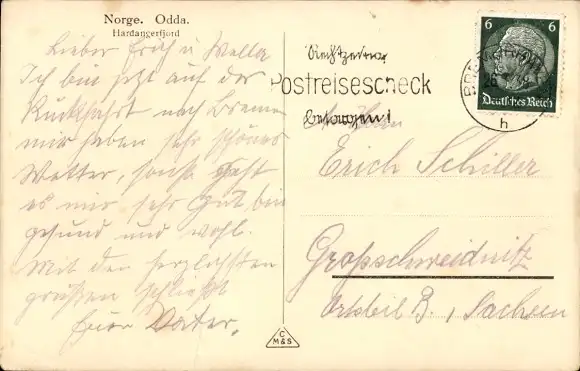 Norge. Odda.
Hardangerfjord
Lieber Erich u Wella
Ich bin jetzt auf der
Rückfahrt nach Bremen
wir haben sehr schönes
Wetter, sonst geht
es mir sehr gut, bin
gesund und wohl.
Mit den herzlichsten
grüßen schließt
Euer Vater.
Rechtzeitig
Postreisescheck
besorgen!
6 6
Deutsches Reich
h
Erich Schiller
Großschweidnitz
Ortsteil B., Sachsen
C
M&S